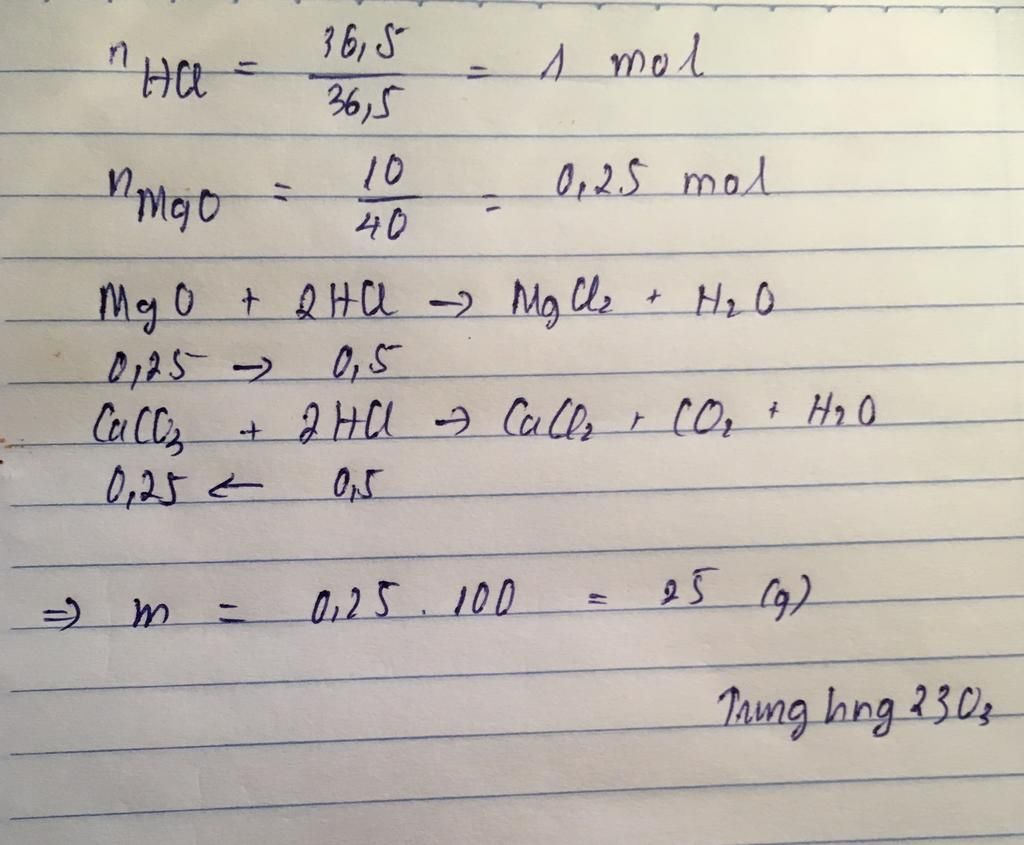 nHCl = 36,5 / 36,5 = 1 mol
nMgO = 10 / 40 = 0,25 mol
MgO + 2HCl → MgCl2 + H2O
0,25 → 0,5
CaCO3 + 2HCl → CaCl2 + CO2 + H2O
0,25 ← 0,5
⇒ m = 0,25 . 100 = 25 (g)
Trung hng 2303